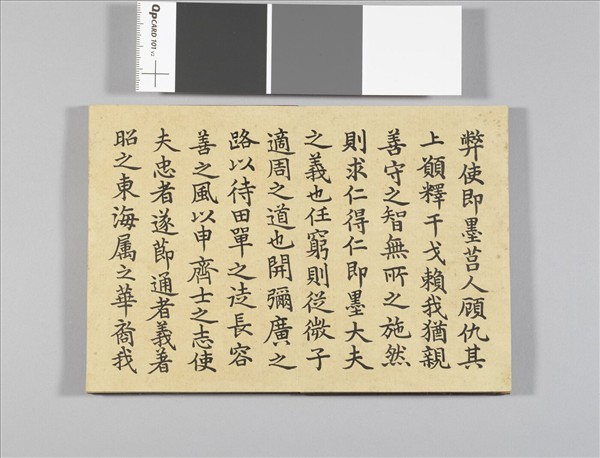 QPCARD 101 v3
弊使即墨莒人顧仇其
上願釋干戈賴我猶親
善守之智無所之施然
則求仁得仁即墨大夫
之義也任窮則従微子
適周之道也開彌廣之
路以待田單之徒長容
善之風以申齊士之志使
夫忠者遂節通者義著
昭之東海属之華裔我